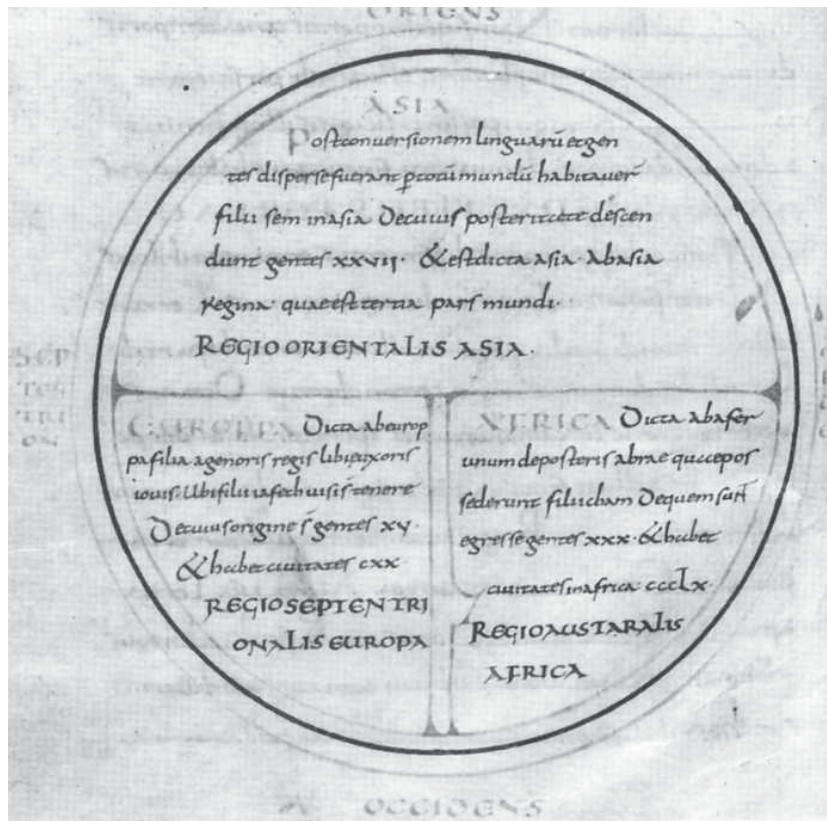 ORIENS
ASIA
Postconuersionem linguarū etgen
tes dispersefuerant ꝑtotū mundū habitauer̄
filii sem inasia Decuius posteritate descen
dunt gentes xxvii· &estdicta asia· abasia
regina· quaeest tertia pars mundi·
REGIOORIENTALIS ASIA·
SEP
TEN
TRI
ON
EUROPPA Dicta abeurop
pafilia agenoris regis libiæuxoris
iouis· Ubifilii iafeth uisis̄ tenere
Decuiusorigine s̄ gentes xv·
&habetciuitates cxx·
REGIOSEPTENTRI
ONALISEUROPA
AFRICA Dicta abafer
unumdeposteris abrae quaepos
sederunt filiicham Dequem sun̄t
egressegentes xxx· &habet
ciuitatesinafrica cccLx·
REGIOAUSTARALIS
AFRICA
OCCIDENS